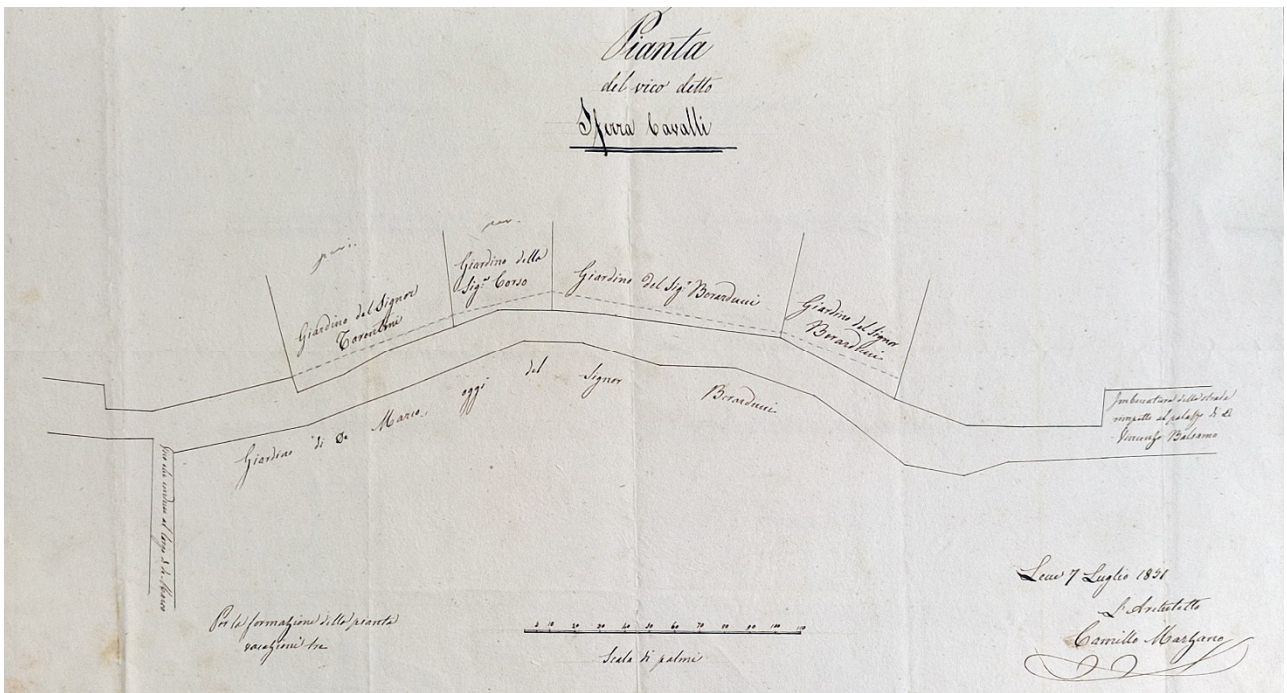 Pianta
del vico detto
Sferra Cavalli
Giardino del Signor
Tarentini
Giardino della
Sig.ra Corso
Giardino del Sig.r Berarducci
Giardino del Signor
Berarducci
Giardino di De Marco, oggi del Signor Berarducci
Imboccatura della strada
rimpetto al palazzo di D.
Vincenzo Balsamo
Vico che conduce al largo di de Marco
Per la formazione della pianta
vacazioni tre
5 10 20 30 40 50 60 70 80 90 100 110
Scala di palmi
Lecce 7 Luglio 1851
L'Architetto
Camillo Marzano